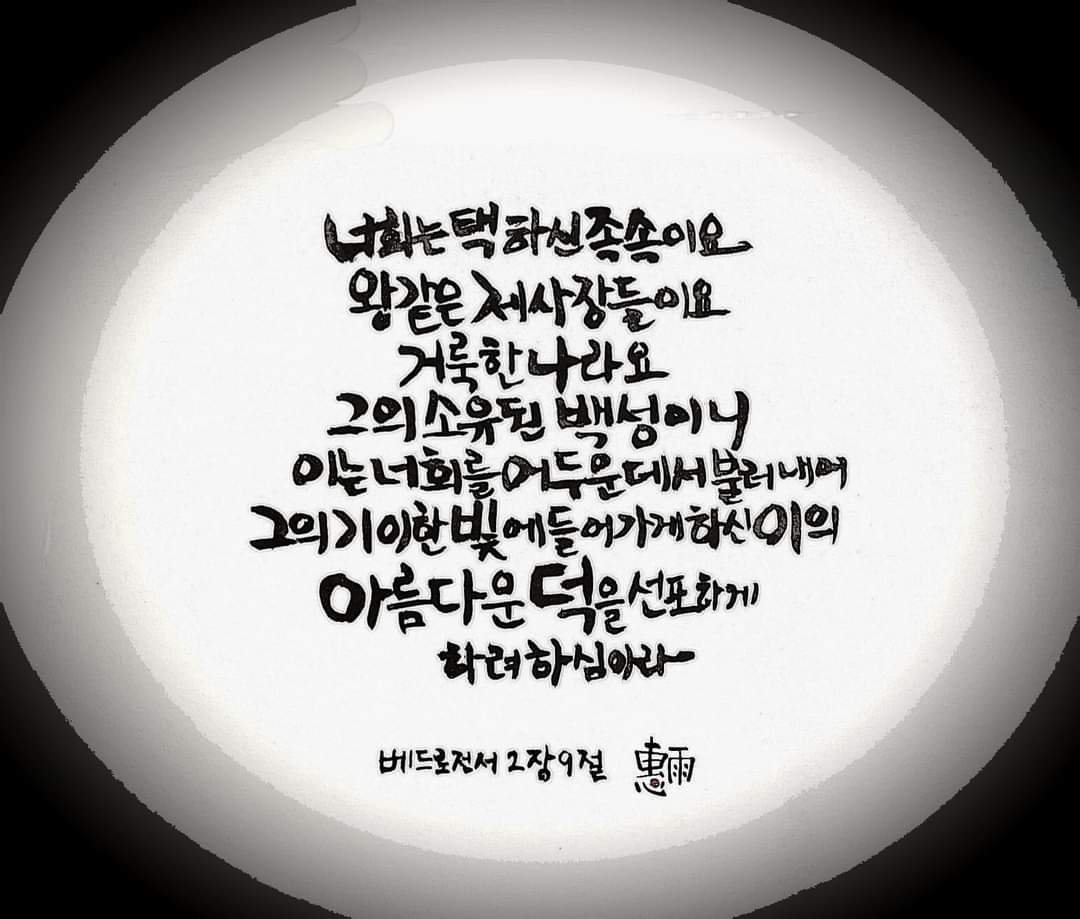 너희는 택하신 족속이요
왕같은 제사장들이요
거룩한 나라요
그의 소유된 백성이니
이는 너희를 어두운데서 불러내어
그의 기이한 빛에 들어가게 하신 이의
아름다운 덕을 선포하게
하려 하심이라
베드로전서 2장 9절 惠雨